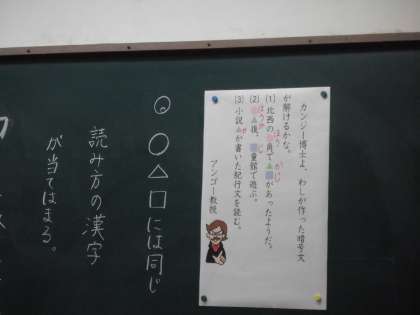 カンジー博士よ、わしが作った暗号文
が解けるかな。
ほう かじ
(1) 北西の○角で△□があったようだ。
ほうか じ
(2) ○△後、□童館で遊ぶ。
か
(3) 小説△が書いた紀行文を読む。
アンゴー教授
○△□には同じ
読み方の漢字
が当てはまる。